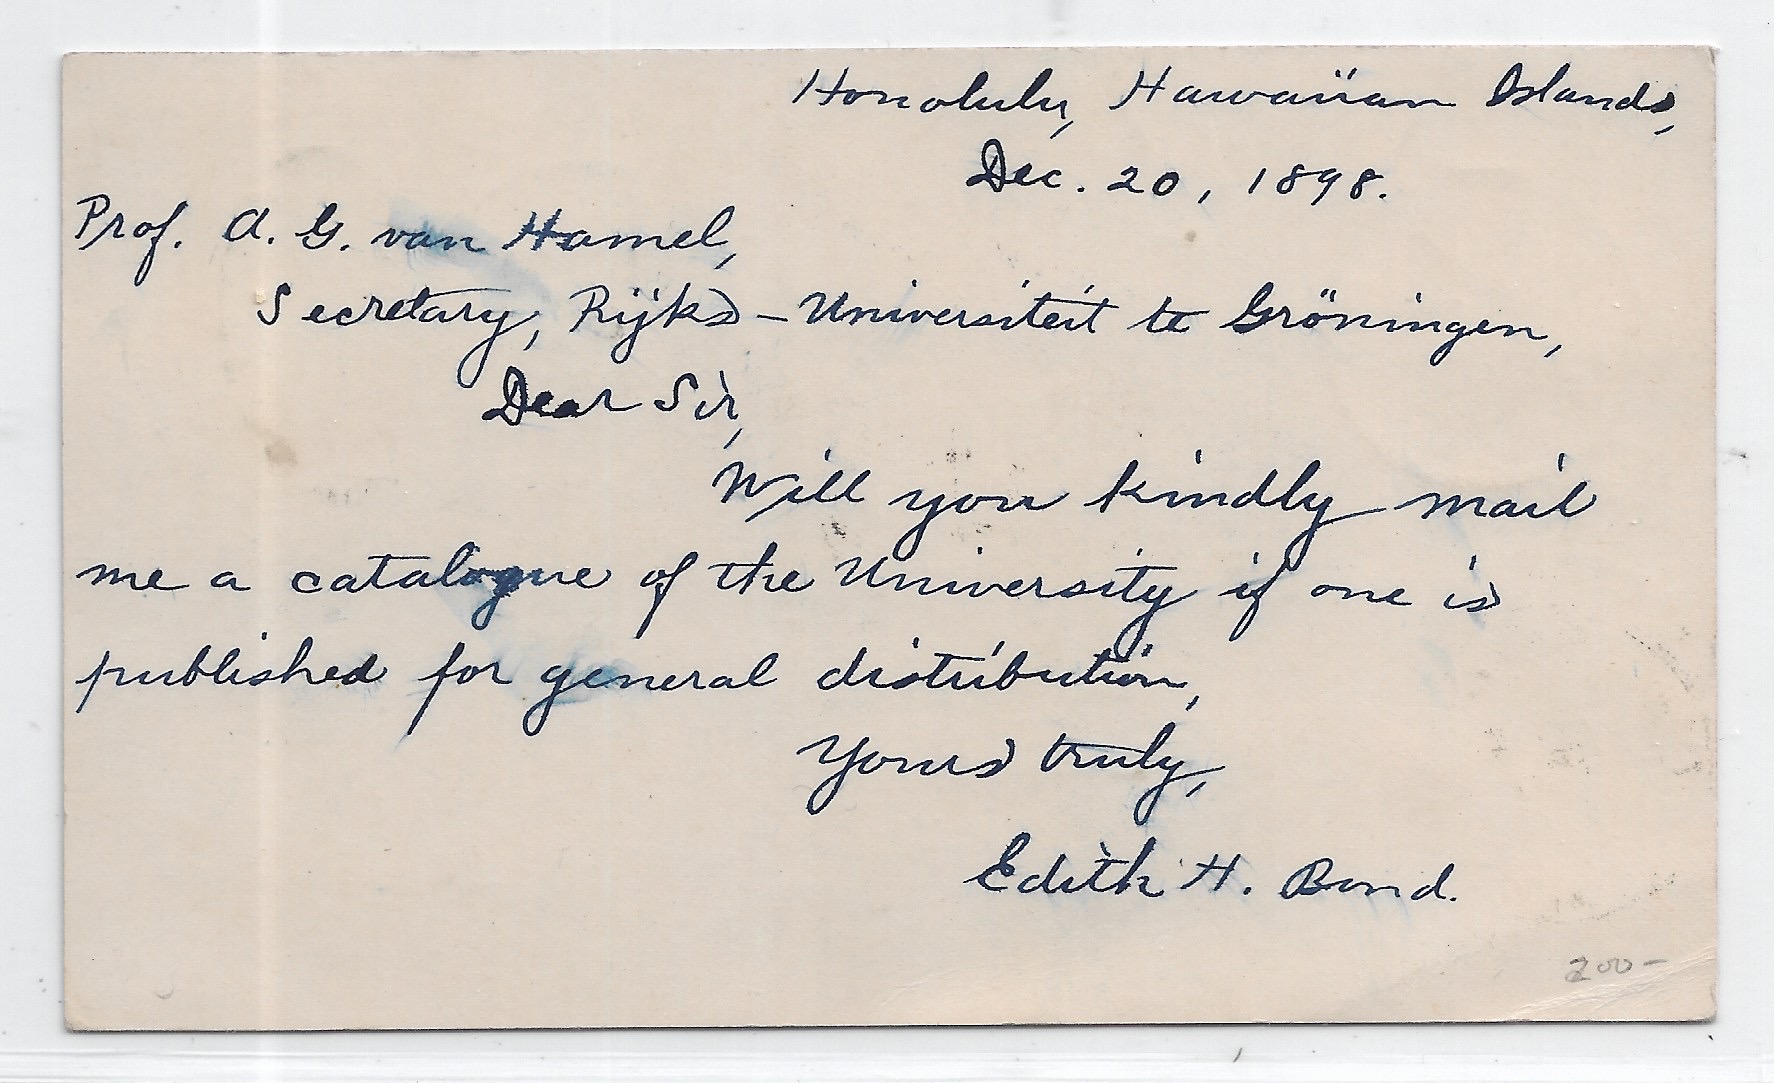 Honolulu, Hawaiian Islands,
Dec. 20, 1898.
Prof. A. G. van Hamel,
Secretary, Rijks-Universiteit te Gröningen,
Dear Sir,
Will you kindly mail
me a catalogue of the University if one is
published for general distribution,
Yours truly,
Edith H. Bond.
200-